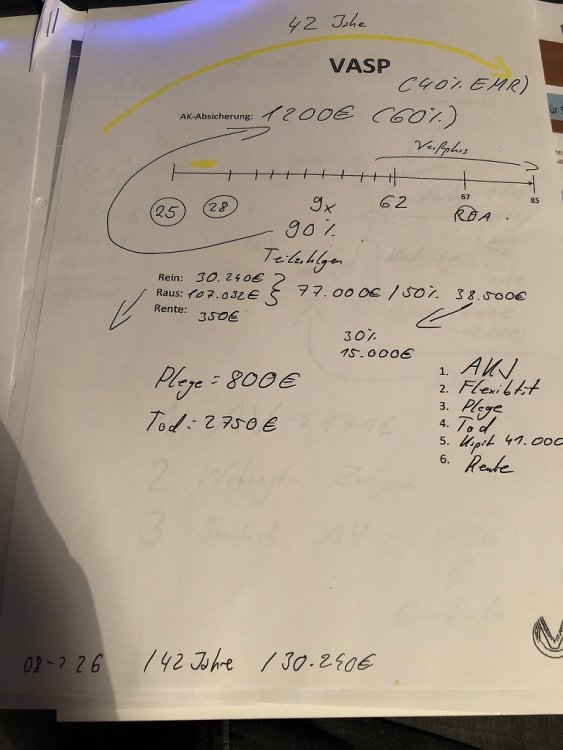 42 Jahre
VASP
(40% EMR)
AK-Absicherung: 1200€ (60%)
25 28 9x 62 67 85
RDA
90%
Rein: 30.240€
Raus: 107.032€ 77.000€ / 50% 38.500€
Rente: 350€
30%
15.000€
Plege = 800€
Tod: 2750€
1. AKV
2. Flexibität
3. Plege
4. Tod
5. Kapit 41.000
6. Rente
08 -> 26 / 42 Jahre / 30.240€